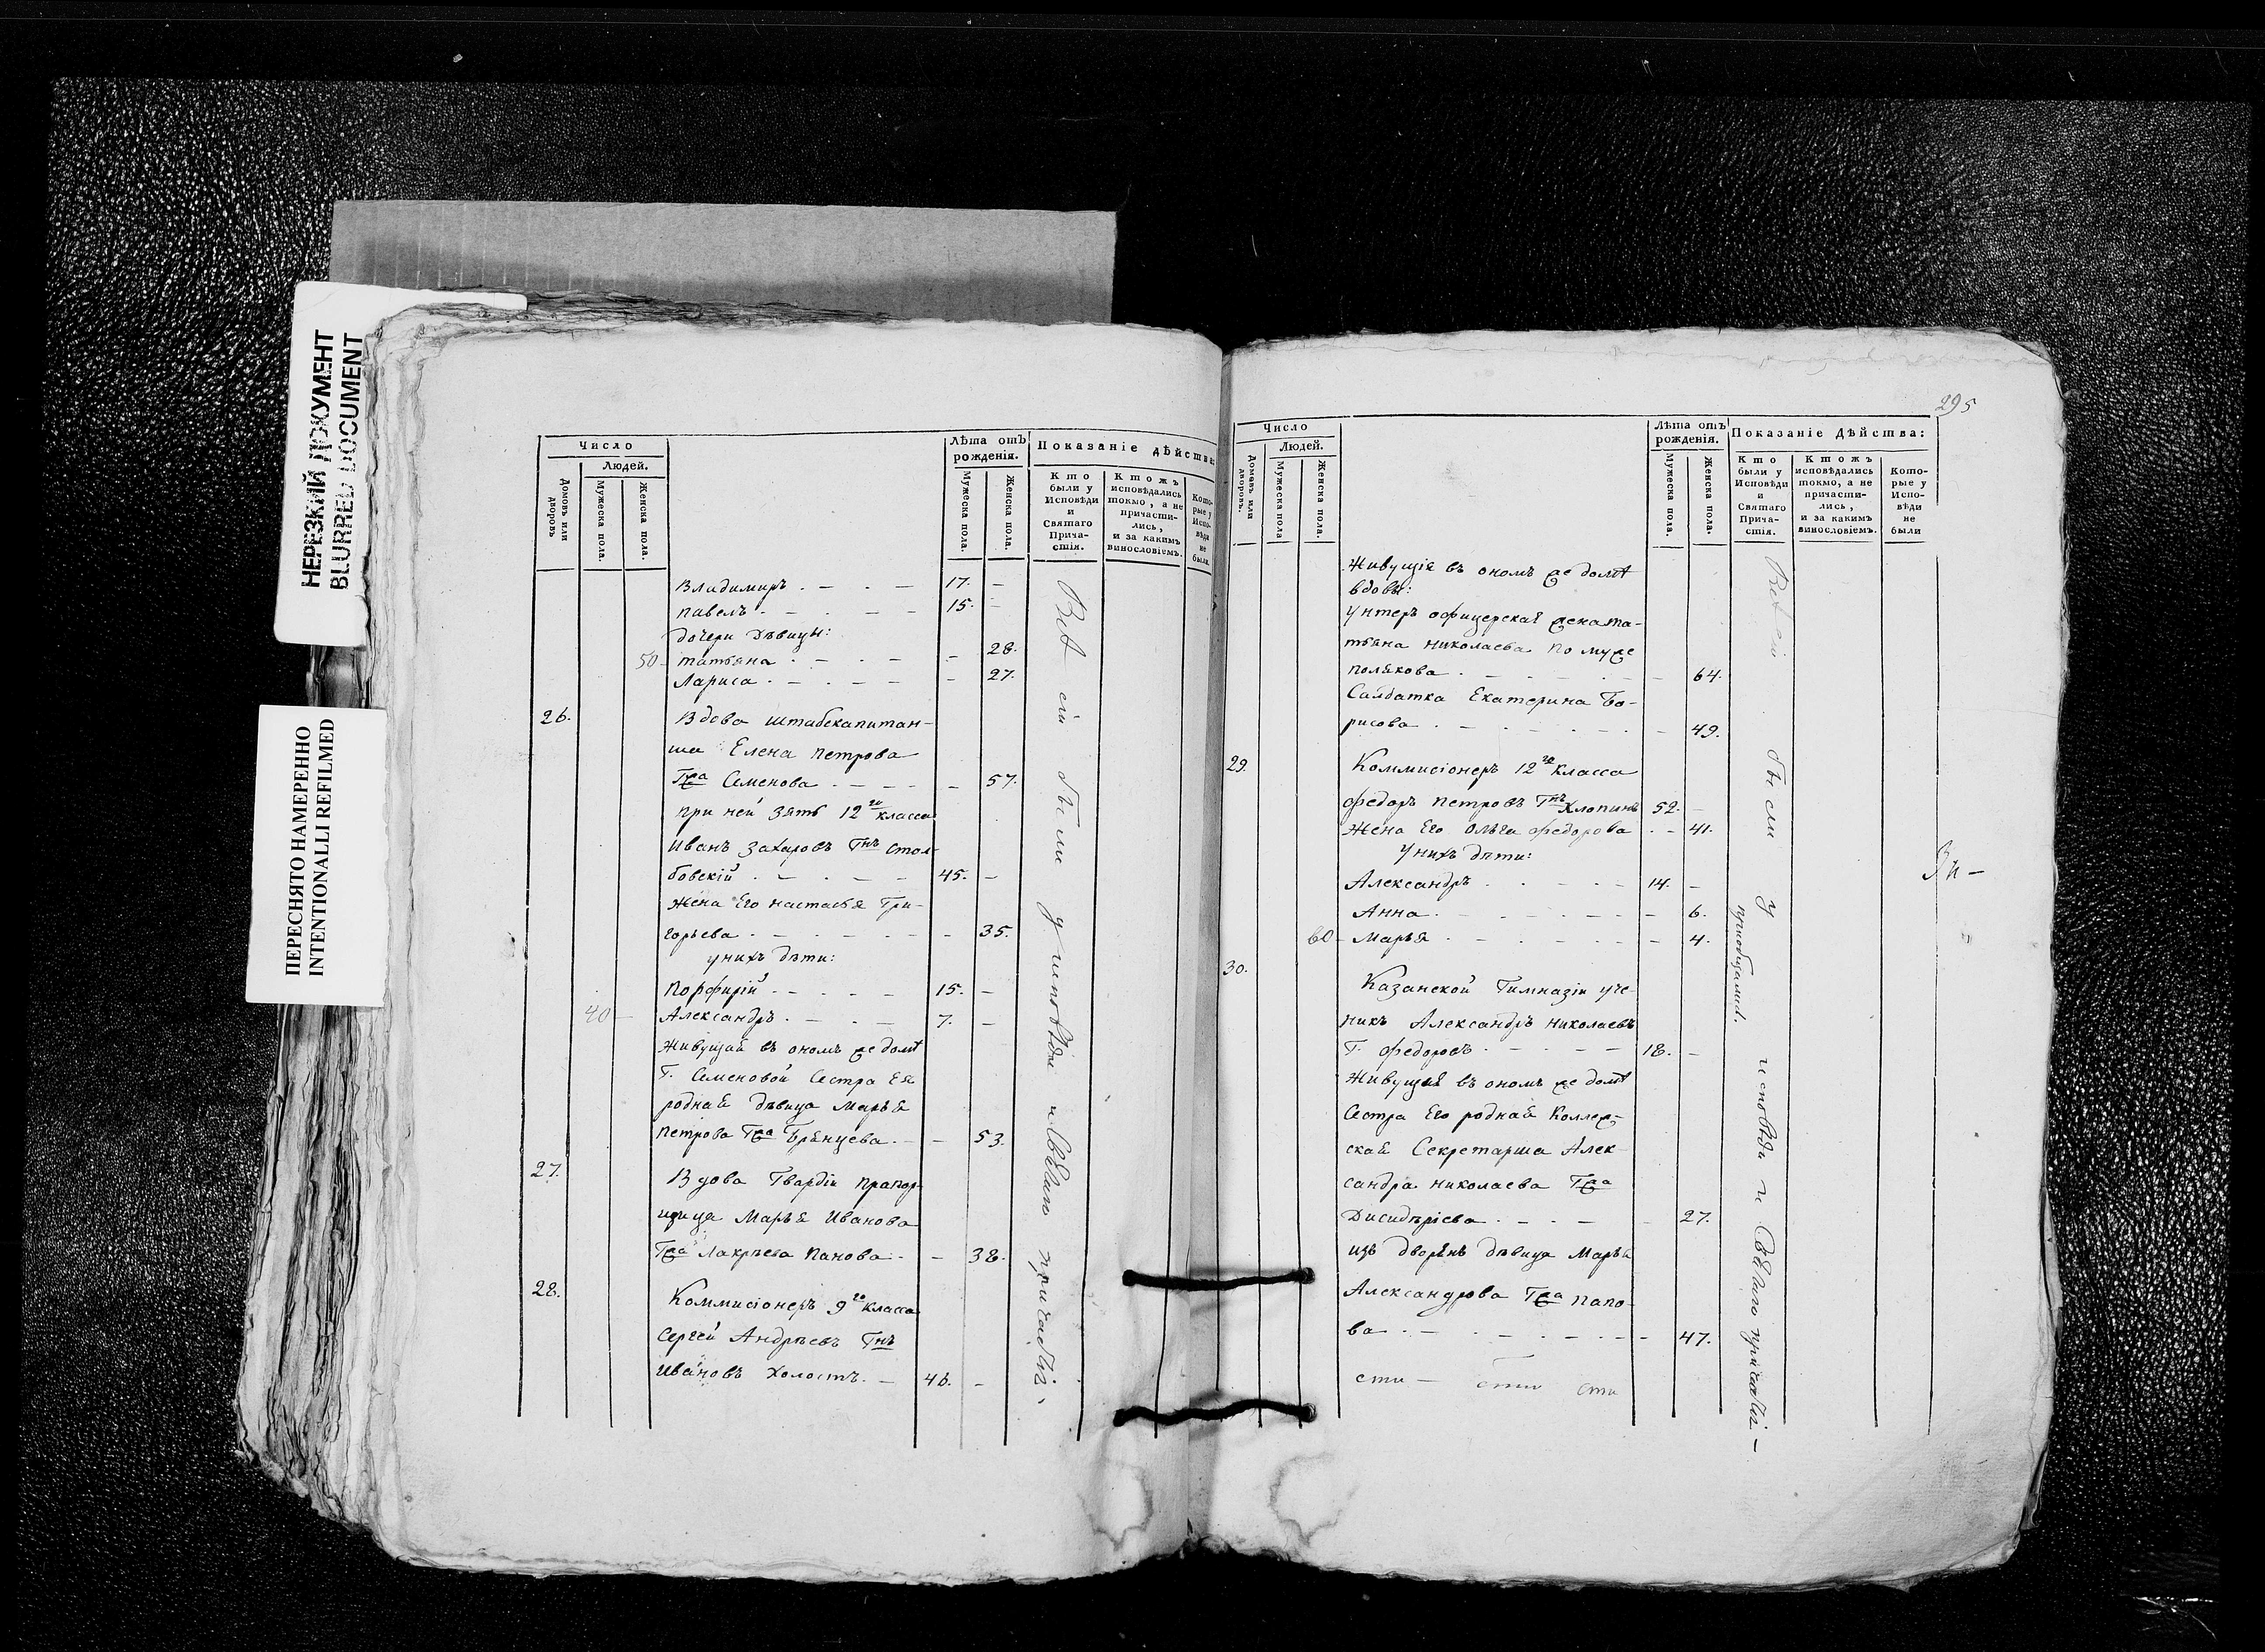 НЕРЕЗКИЙ ДОКУМЕНТ
BLURRED DOCUMENT
ПЕРЕСНЯТО НАМЕРЕННО
INTENTIONALLI REFILMED
Число
Людей.
Домовъ или дворовъ
Мужеска пола.
Женска пола.
Лѣта отъ рожденія.
Мужеска пола.
Женска пола.
Показаніе дѣйства:
Кто были у Исповѣди и Святаго Прича-стія.
Ктожъ исповѣдались токмо, а не причасти-лись, и за какимъ винословіемъ.
Кото-рые у Испо-вѣди не были.
Владимиръ 17. –
павелъ 15. –
дочери дѣвицы:
50 татьяна – 28.
Лариса – 27.
26. Вдова штабскапитан-
ша Елена петрова
Гжа Семенова – 57.
при ней зять 12го класса
Иванъ Захаровъ Гнъ Стол-
бовскій 45. –
Жена Его настасья Гри-
горьева – 35.
у нихъ дѣти:
Порфирій 15. –
40 Александръ 7. –
живущая въ ономъ же домѣ
Г. Семеновой Сестра Ея
родная дѣвица Марья
петрова Гжа Брянцева – 53.
27. Вдова Гвардіи прапор-
щица Марья Иванова
Гжа Лакрѣева Панова – 38.
28. Коммисіонеръ 9го класса
Сергей Андрѣевъ Гнъ
Ивановъ холостъ 46. –
Всѣ сіи были у исповѣди и Святаго причастія.
295
Число
Людей.
Домовъ или дворовъ.
Мужеска пола
Женска пола.
Лѣта отъ рожденія.
Мужеска пола.
Женска пола.
Показаніе дѣйства:
Кто были у Исповѣди и Святаго Прича-стія.
Ктожъ исповѣдались токмо, а не причасти-лись, и за какимъ винословіемъ.
Кото-рые у Испо-вѣди не были
Живущія въ ономъ же домѣ
вдовы:
унтеръ офицерская жена та-
тьяна николаева по муже
полякова – 64.
Салдатка Екатерина Бо-
рисова – 49.
29. Коммисіонеръ 12го класса
федоръ петровъ Гнъ Хлопинъ 52. –
Жена Его Ольга федорова – 41.
у нихъ дѣти:
Александръ 14. –
Анна – 6.
60 Марья – 4.
30. Казанской Гимназіи уче-
никъ Александръ николаевъ
Г. федоровъ 18. –
Живущія въ ономъ же домѣ
Сестра Его родная Коллеж-
ская Секретарша Алек-
сандра николаева Гжа
– 27.
изъ дворянъ дѣвица Марья
Александрова Гжа Папо-
ва – 47.
Всѣ сіи были у исповѣди и Святаго причастія –
приобщались.